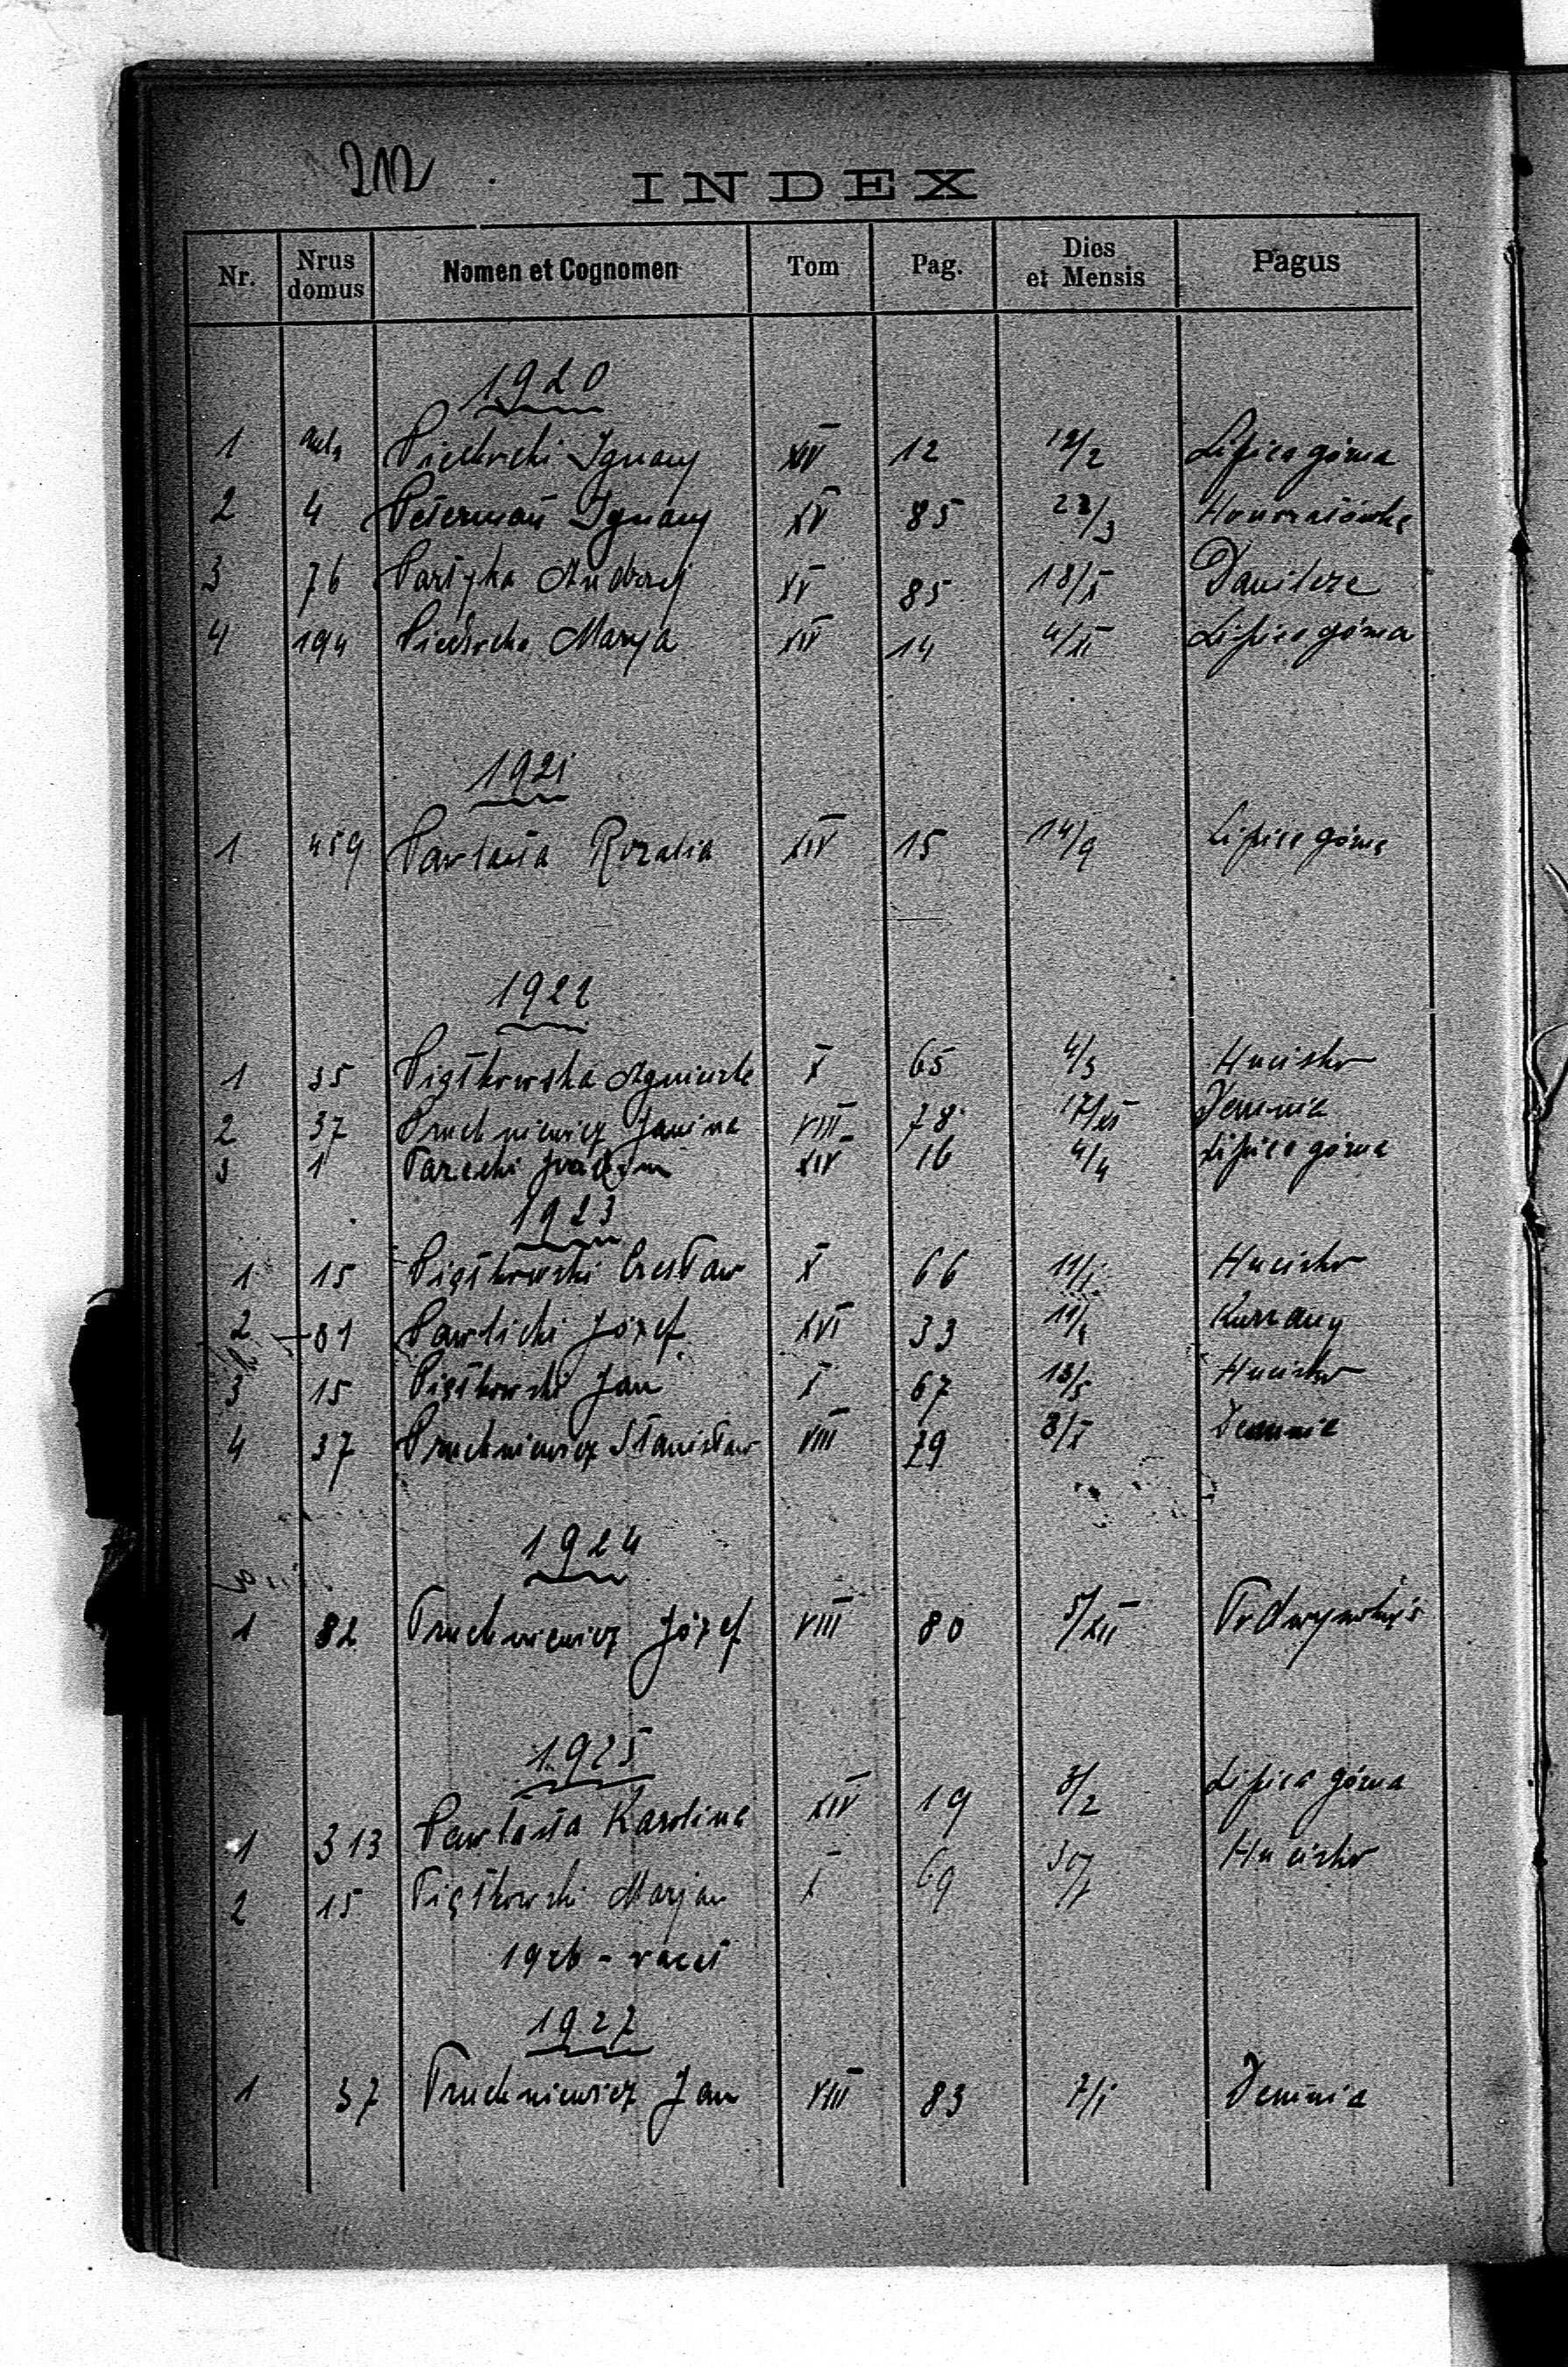 212
INDEX
Nr. Nrus domus Nomen et Cognomen Tom Pag. Dies et Mensis Pagus
1920
1 Ignacy XIV 12 12/2 Lipica górna
2 4 Peterman Ignacy XV 85 22/3 Honoratówka
3 76 Partyka Andrzej XV 85 18/X Danilcze
4 194 Marya XIV 14 4/XI Lipica górna
1921
1 459 Rozalia XIV 15 14/9 Lipica górna
1922
1 35 Piątkowska Agnieszka X 65 4/3 Hucisko
2 37 Pruchniewicz Janina VIII 78 17/XI Demnia
3 1 XIV 16 4/4 Lipica górna
1923
1 15 Piątkowski Czesław X 66 11/1 Hucisko
2 81 Pawlicki Józef XVI 33 Kurzany
3 15 Piątkowski Jan X 67 13/5 Hucisko
4 37 Pruchniewicz Stanisław VIII 79 8/X Demnia
1924
1 82 Pruchniewicz Józef VIII 80 5/XII
1925
1 313 Karolina XIV 19 3/2 Lipica górna
2 15 Piątkowski Marjan X 69 Hucisko
1926 - vacat
1927
1 37 Pruchniewicz Jan VIII 83 7/1 Demnia